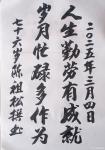 二〇二五年三月四日
人生勤劳有成就
岁月忙碌多作为
七十六岁陈祖松撰並书